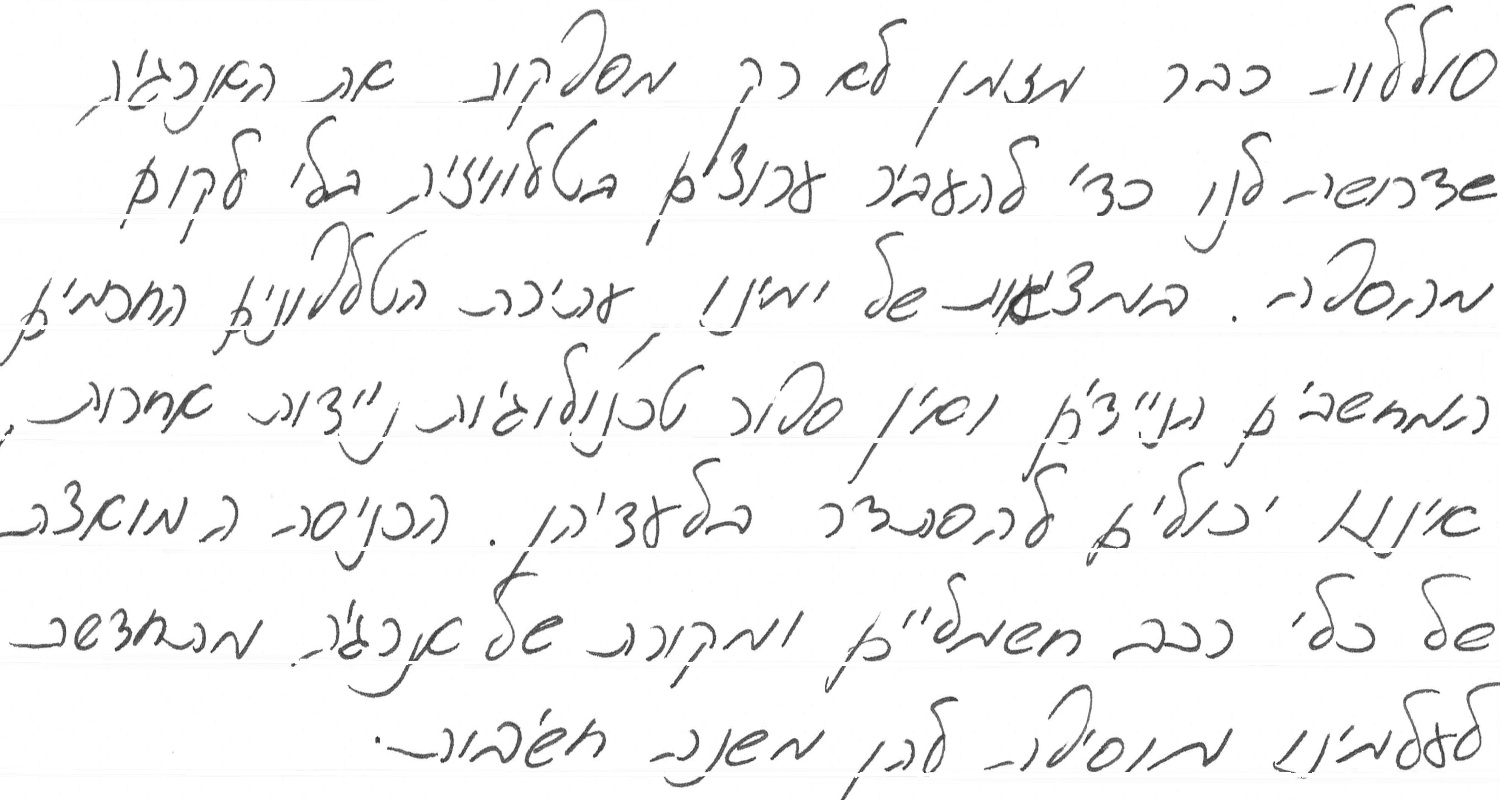 סוללות כבר מזמן לא רק מספקות את האנרגיה
שדרושה לנו כדי להעביר ערוצים בטלוויזיה בלי לקום
מהספה. במציאות של ימינו, עתירת הטלפונים החכמים
המחשבים הניידים ואין ספור טכנולוגיות ניידות אחרות,
איננו יכולים להסתדר בלעדיהן. הכניסה המואצת
של כלי רכב חשמליים ומקורות של אנרגיה מתחדשת
לעולמינו מוסיפה להן משנה חשיבות.